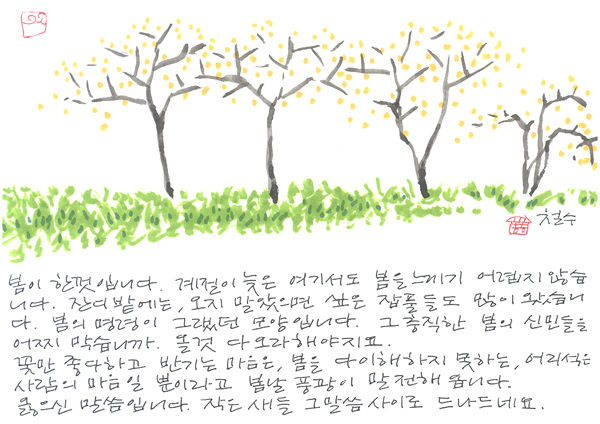 철수
봄이 한껏입니다. 계절이 늦은 여기서도 봄을 느끼기 어렵지 않습
니다. 잔디밭에는, 오지 말았으면 싶은 잡풀들도 많이 왔습니
다. 봄의 명령이 그랬던 모양입니다. 그 충직한 봄의 신민들을
어찌 막습니까. 뜰것 다 오라해야지요.
꽃만 좋다하고 반기는 마음은, 봄을 다 이해하지 못하는, 어리석은
사람의 마음일 뿐이라고 봄날 풍광이 말 전해 옵니다.
옳으신 말씀입니다. 작은 새들 그 말씀 사이로 드나드네요.